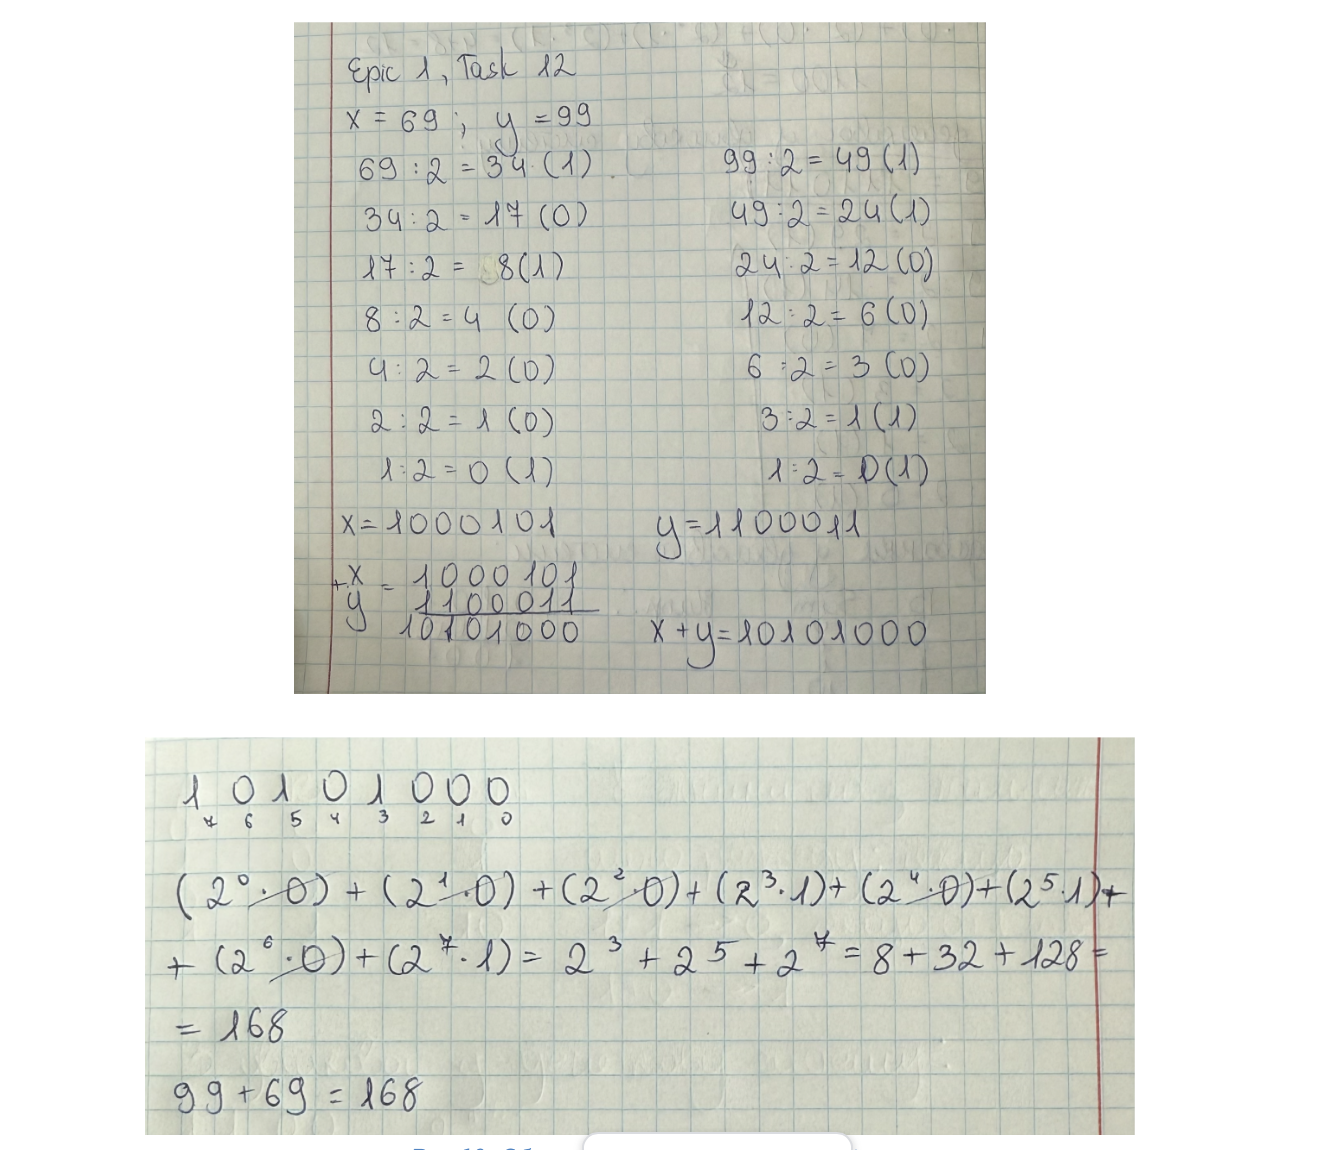 Epic 1, Task 12
x = 69; y = 99
69 : 2 = 34 (1)
34 : 2 = 17 (0)
17 : 2 = 8 (1)
8 : 2 = 4 (0)
4 : 2 = 2 (0)
2 : 2 = 1 (0)
1 : 2 = 0 (1)
99 : 2 = 49 (1)
49 : 2 = 24 (1)
24 : 2 = 12 (0)
12 : 2 = 6 (0)
6 : 2 = 3 (0)
3 : 2 = 1 (1)
1 : 2 = 0 (1)
x = 1000101 y = 1100011
+ x = 1000101
y 1100011
10101000 x + y = 10101000
1 0 1 0 1 0 0 0
7 6 5 4 3 2 1 0
(2⁰ · 0) + (2¹ · 0) + (2² · 0) + (2³ · 1) + (2⁴ · 0) + (2⁵ · 1) +
+ (2⁶ · 0) + (2⁷ · 1) = 2³ + 2⁵ + 2⁷ = 8 + 32 + 128 =
= 168
99 + 69 = 168